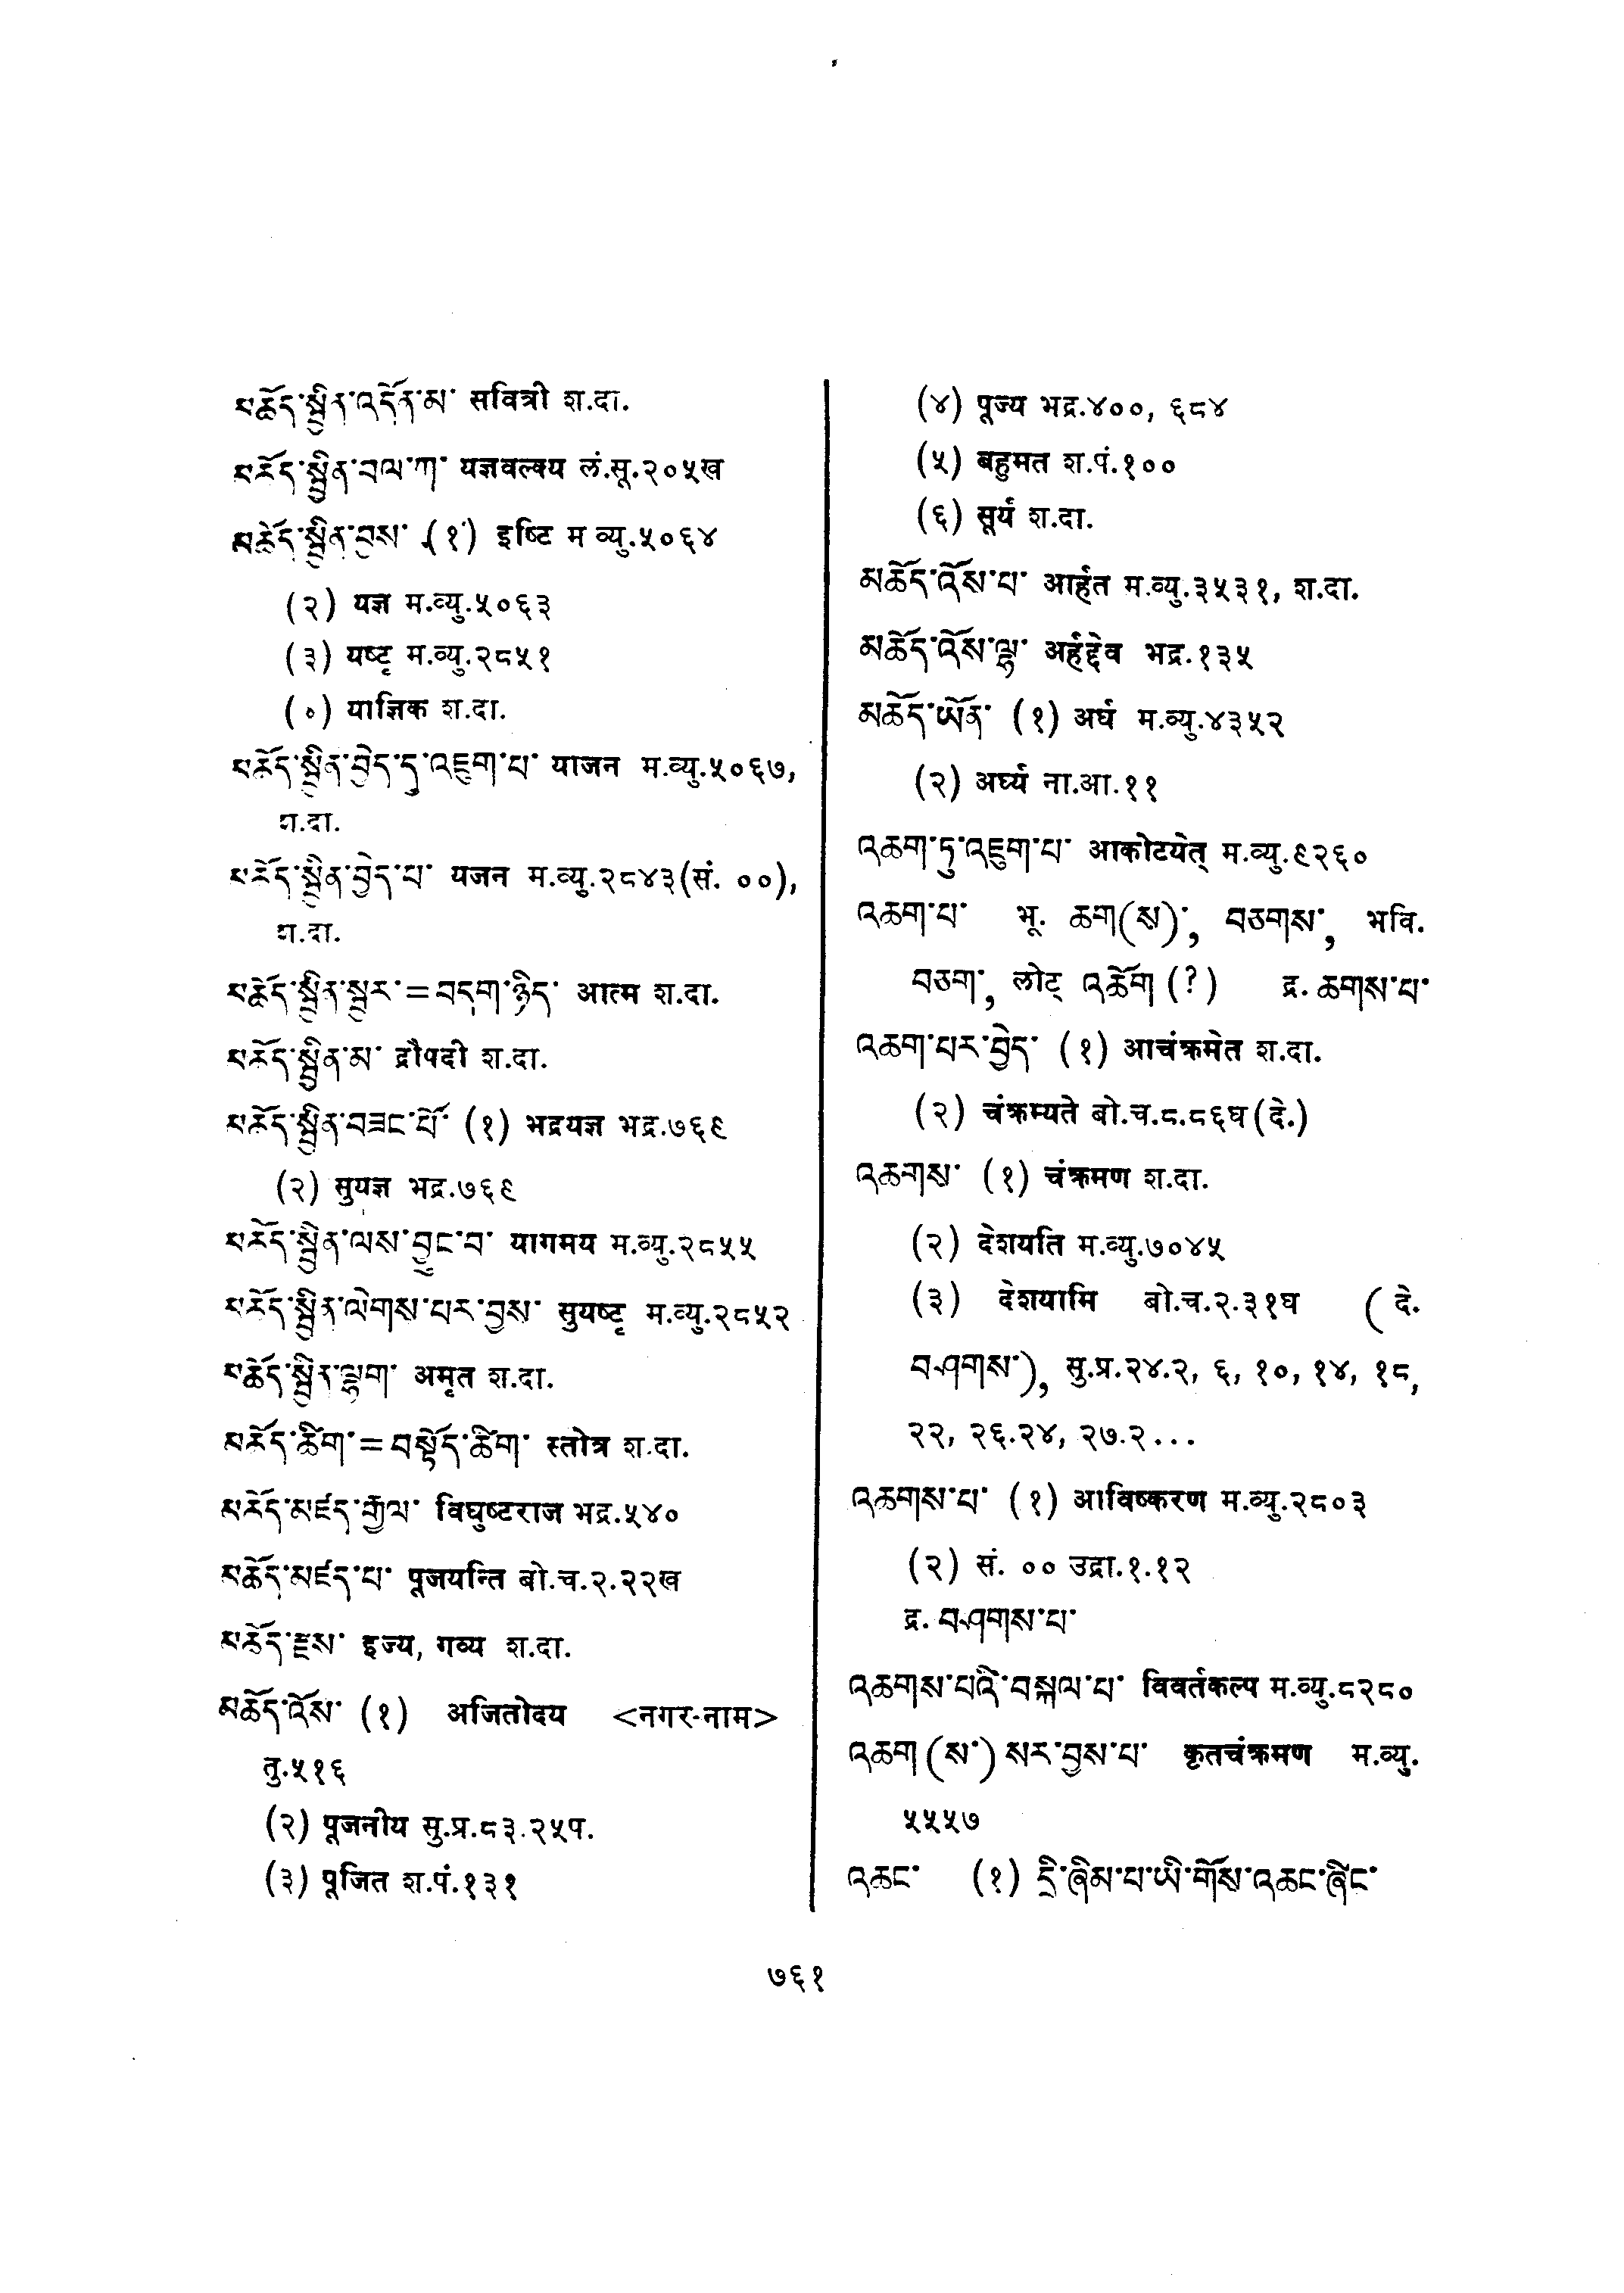 མཆོད་སྦྱིན་འདོན་མ་ सवित्री श.दा.
མཆོད་སྦྱིན་བལ་ཀ་ यज्ञवल्क्य लं.सू.२०५ख
མཆོད་སྦྱིན་བྱས་ (१) इष्टि म व्यु.५०६४
(२) यज्ञ म.व्यु.५०६३
(३) यष्टृ म.व्यु.२८५१
(०) याज्ञिक श.दा.
མཆོད་སྦྱིན་བྱེད་དུ་འཇུག་པ་ याजन म.व्यु.५०६७,
श.दा.
མཆོད་སྦྱིན་བྱེད་པ་ यजन म.व्यु.२८४३(सं. ००),
श.दा.
མཆོད་སྦྱིན་སྦྱར་=བདག་ཉིད་ आत्म श.दा.
མཆོད་སྦྱིན་མ་ द्रौपदी श.दा.
མཆོད་སྦྱིན་བཟང་པོ་ (१) भद्रयज्ञ भद्र.७६९
(२) सुयज्ञ भद्र.७६९
མཆོད་སྦྱིན་ལས་བྱུང་བ་ यागमय म.व्यु.२८५५
མཆོད་སྦྱིན་ལེགས་པར་བྱས་ सुयष्टृ म.व्यु.२८५२
མཆོད་སྦྱིན་ལྷག་ अमृत श.दा.
མཆོད་ཚིག་=བསྟོད་ཚིག་ स्तोत्र श.दा.
མཆོད་མཛད་རྒྱལ་ विघुष्टराज भद्र.५४०
མཆོད་མཛད་པ་ पूजयन्ति बो.च.२.२२ख
མཆོད་རྫས་ इज्य, गव्य श.दा.
མཆོད་འོས་ (१) अजितोदय <नगर-नाम>
तु.५१६
(२) पूजनीय सु.प्र.८३.२५प.
(३) पूजित श.पं.१३१
(४) पूज्य भद्र.४००, ६८४
(५) बहुमत श.पं.१००
(६) सूर्य श.दा.
མཆོད་འོས་པ་ आर्हत म.व्यु.३५३१, श.दा.
མཆོད་འོས་ལྷ་ अर्हद्देव भद्र.१३५
མཆོད་ཡོན་ (१) अर्घ म.व्यु.४३५२
(२) अर्घ्य ना.आ.११
འཆག་ཏུ་འཇུག་པ་ आकोटयेत् म.व्यु.९२६०
འཆག་པ་ भू. ཆག(ས)་, བཅགས་, भवि.
བཅག་, लोट् འཆོག (?) द्र. ཆགས་པ་
འཆག་པར་བྱེད་ (१) आचंक्रमेत श.दा.
(२) चंक्रम्यते बो.च.८.८६घ(दे.)
འཆགས་ (१) चंक्रमण श.दा.
(२) देशयति म.व्यु.७०४५
(३) देशयामि बो.च.२.३१घ (दे.
བཤགས་), सु.प्र.२४.२, ६, १०, १४, १८,
२२, २६.२४, २७.२...
འཆགས་པ་ (१) आविष्करण म.व्यु.२८०३
(२) सं. ०० उद्रा.१.१२
द्र. བཤགས་པ་
འཆགས་པའི་བསྐལ་པ་ विवर्तकल्प म.व्यु.८२८०
འཆག(ས་)སར་བྱས་པ་ कृतचंक्रमण म.व्यु.
५५५७
འཆང་ (१) དྲི་ཞིམ་པ་ཡི་གོས་འཆང་ཞིང་
७६१